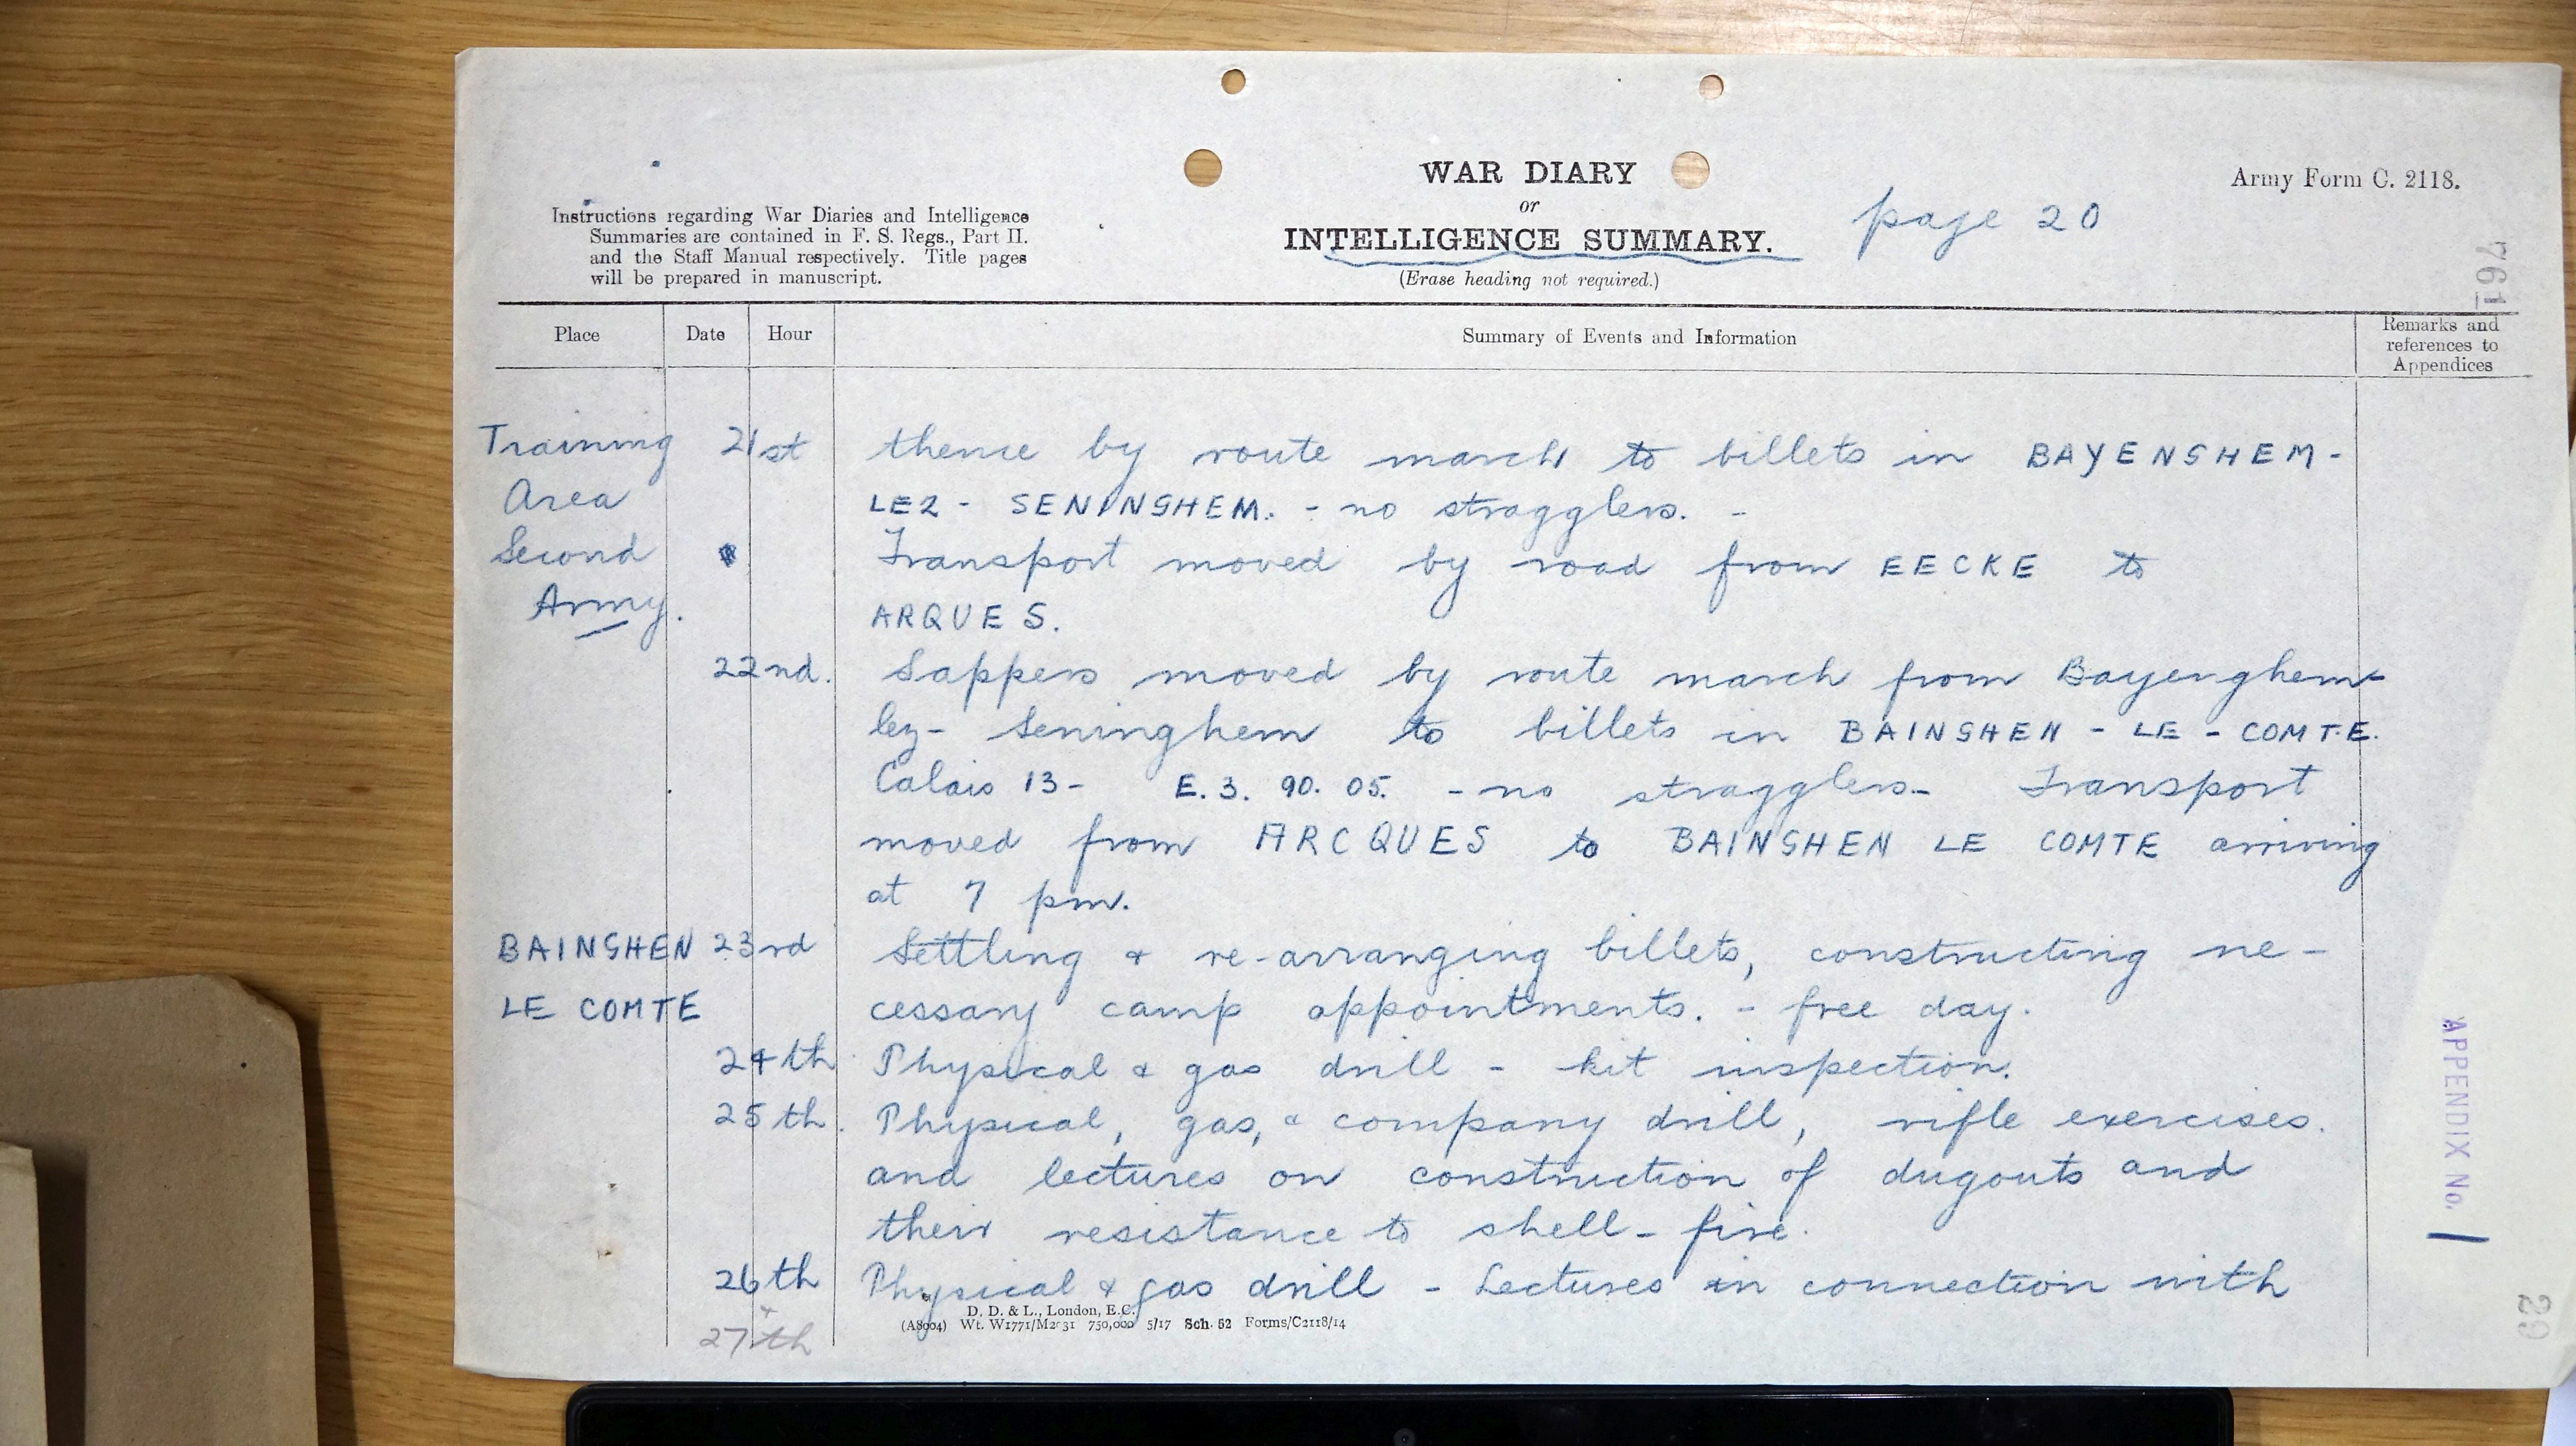 WAR DIARY
or
INTELLIGENCE SUMMARY.
(Erase heading not required.)
page 20
Army Form C. 2118.
Instructions regarding War Diaries and Intelligence
Summaries are contained in F. S. Regs., Part II.
and the Staff Manual respectively. Title pages
will be prepared in manuscript.
761
Place Date Hour Summary of Events and Information Remarks and
references to
Appendices
Training 21st thence by route march to billets in BAYENGHEM-
Area LEZ - SENINGHEM. - no stragglers. -
Second Transport moved by road from EECKE to
Army. ARQUES.
22nd. Sappers moved by route march from Bayenghem-
lez- Seninghem to billets in BAINGHEN - LE - COMTE.
Calais 13- E. 3. 90. 05. - no stragglers- Transport
moved from ARCQUES to BAINGHEN LE COMTE arriving
at 7 pm.
BAINGHEN 23rd Settling & re-arranging billets, constructing ne-
LE COMTE cessary camp appointments. - free day.
24th Physical & gas drill - kit inspection.
25th. Physical, gas, & company drill, rifle exercises.
and lectures on construction of dugouts and
their resistance to shell-fire.
26th Physical & gas drill - Lectures in connection with
&
27th
D. D. & L., London, E.C.
(A8904) Wt. W1771/M2031 750,000 5/17 Sch. 52 Forms/C2118/14
APPENDIX No. 1
29